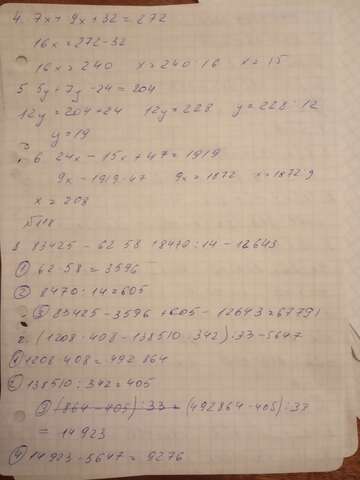 4. 7x + 9x + 32 = 272
16x = 272 - 32
16x = 240 x = 240 : 16 x = 15
5. 5y + 7y - 24 = 204
12y = 204 + 24 12y = 228 y = 228 : 12
y = 19
6. 24x - 15x + 47 = 1919
9x = 1919 - 47 9x = 1872 x = 1872 : 9
x = 208
№118
1. 83425 - 62·58 + 8470 : 14 - 12643
① 62·58 = 3596
② 8470 : 14 = 605
③ 83425 - 3596 + 605 - 12643 = 67791
2. (1208·408 - 138510 : 342) : 33 - 5647
① 1208·408 = 492864
② 138510 : 342 = 405
③ (864 - 405) : 33 = (492864 - 405) : 33
= 14923
④ 14923 - 5647 = 9276